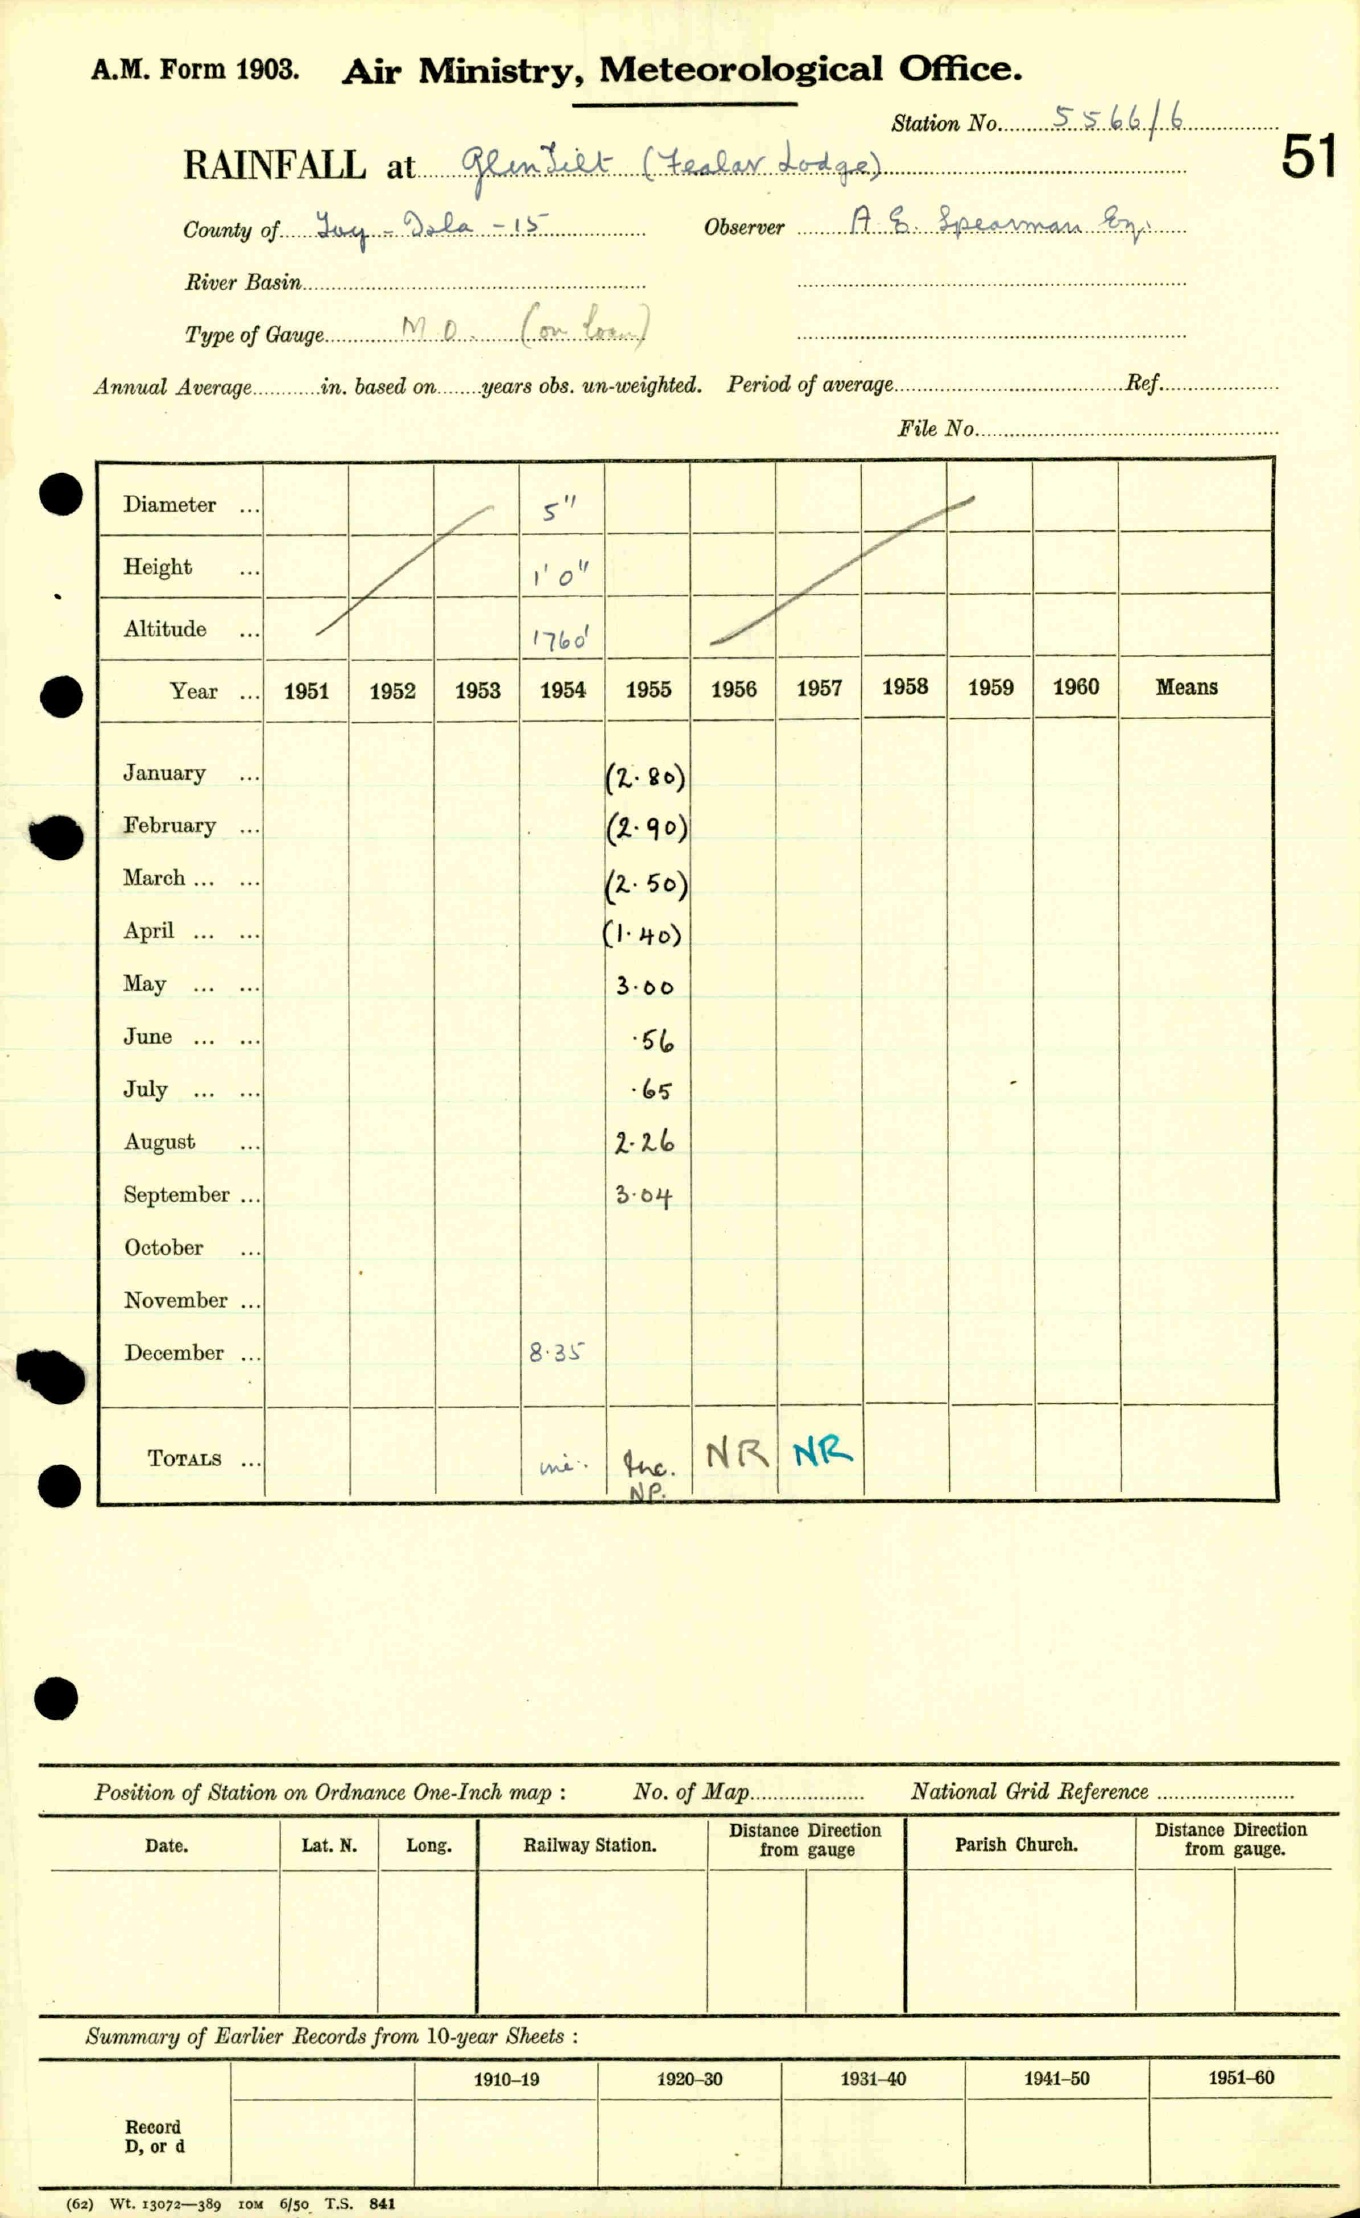 A.M. Form 1903. Air Ministry, Meteorological Office.
Station No. 5566/6
51
RAINFALL at Glen Tilt (Fealar Lodge)
County of Tay - Isla - 15 Observer A. E. Spearman Esq.
River Basin
Type of Gauge M.O. (on loan)
Annual Average in. based on years obs. un-weighted. Period of average Ref.
File No.
Diameter ... 5"
Height ... 1' 0"
Altitude ... 1760'
Year ... 1951 1952 1953 1954 1955 1956 1957 1958 1959 1960 Means
January ... (2.80)
February ... (2.90)
March ... ... (2.50)
April ... ... (1.40)
May ... ... 3.00
June ... ... .56
July ... ... .65
August ... 2.26
September ... 3.04
October ...
November ...
December ... 8.35
TOTALS ... Inc. NR NR
NP.
Position of Station on Ordnance One-Inch map : No. of Map National Grid Reference
Date. Lat. N. Long. Railway Station. Distance from Direction gauge Parish Church. Distance from Direction gauge.
Summary of Earlier Records from 10-year Sheets :
1910–19 1920–30 1931–40 1941–50 1951–60
Record
D, or d
(62) Wt. 13072—389 10M 6/50 T.S. 841